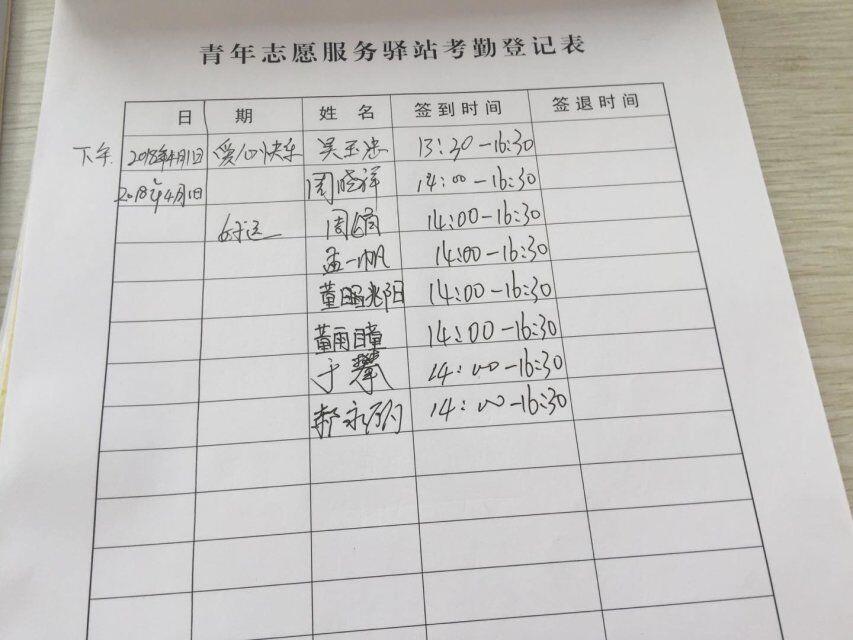 青年志愿服务驿站考勤登记表
日 期 姓名 签到时间 签退时间
下午 2018年4月1日 爱心快乐 吴玉忠 13:30-16:30
2018年4月1日 周晓祥 14:00-16:30
好运 周 14:00-16:30
孟一帆 14:00-16:30
董昭阳 14:00-16:30
董雨瞳 14:00-16:30
于攀 14:00-16:30
郝永 14:00-16:30